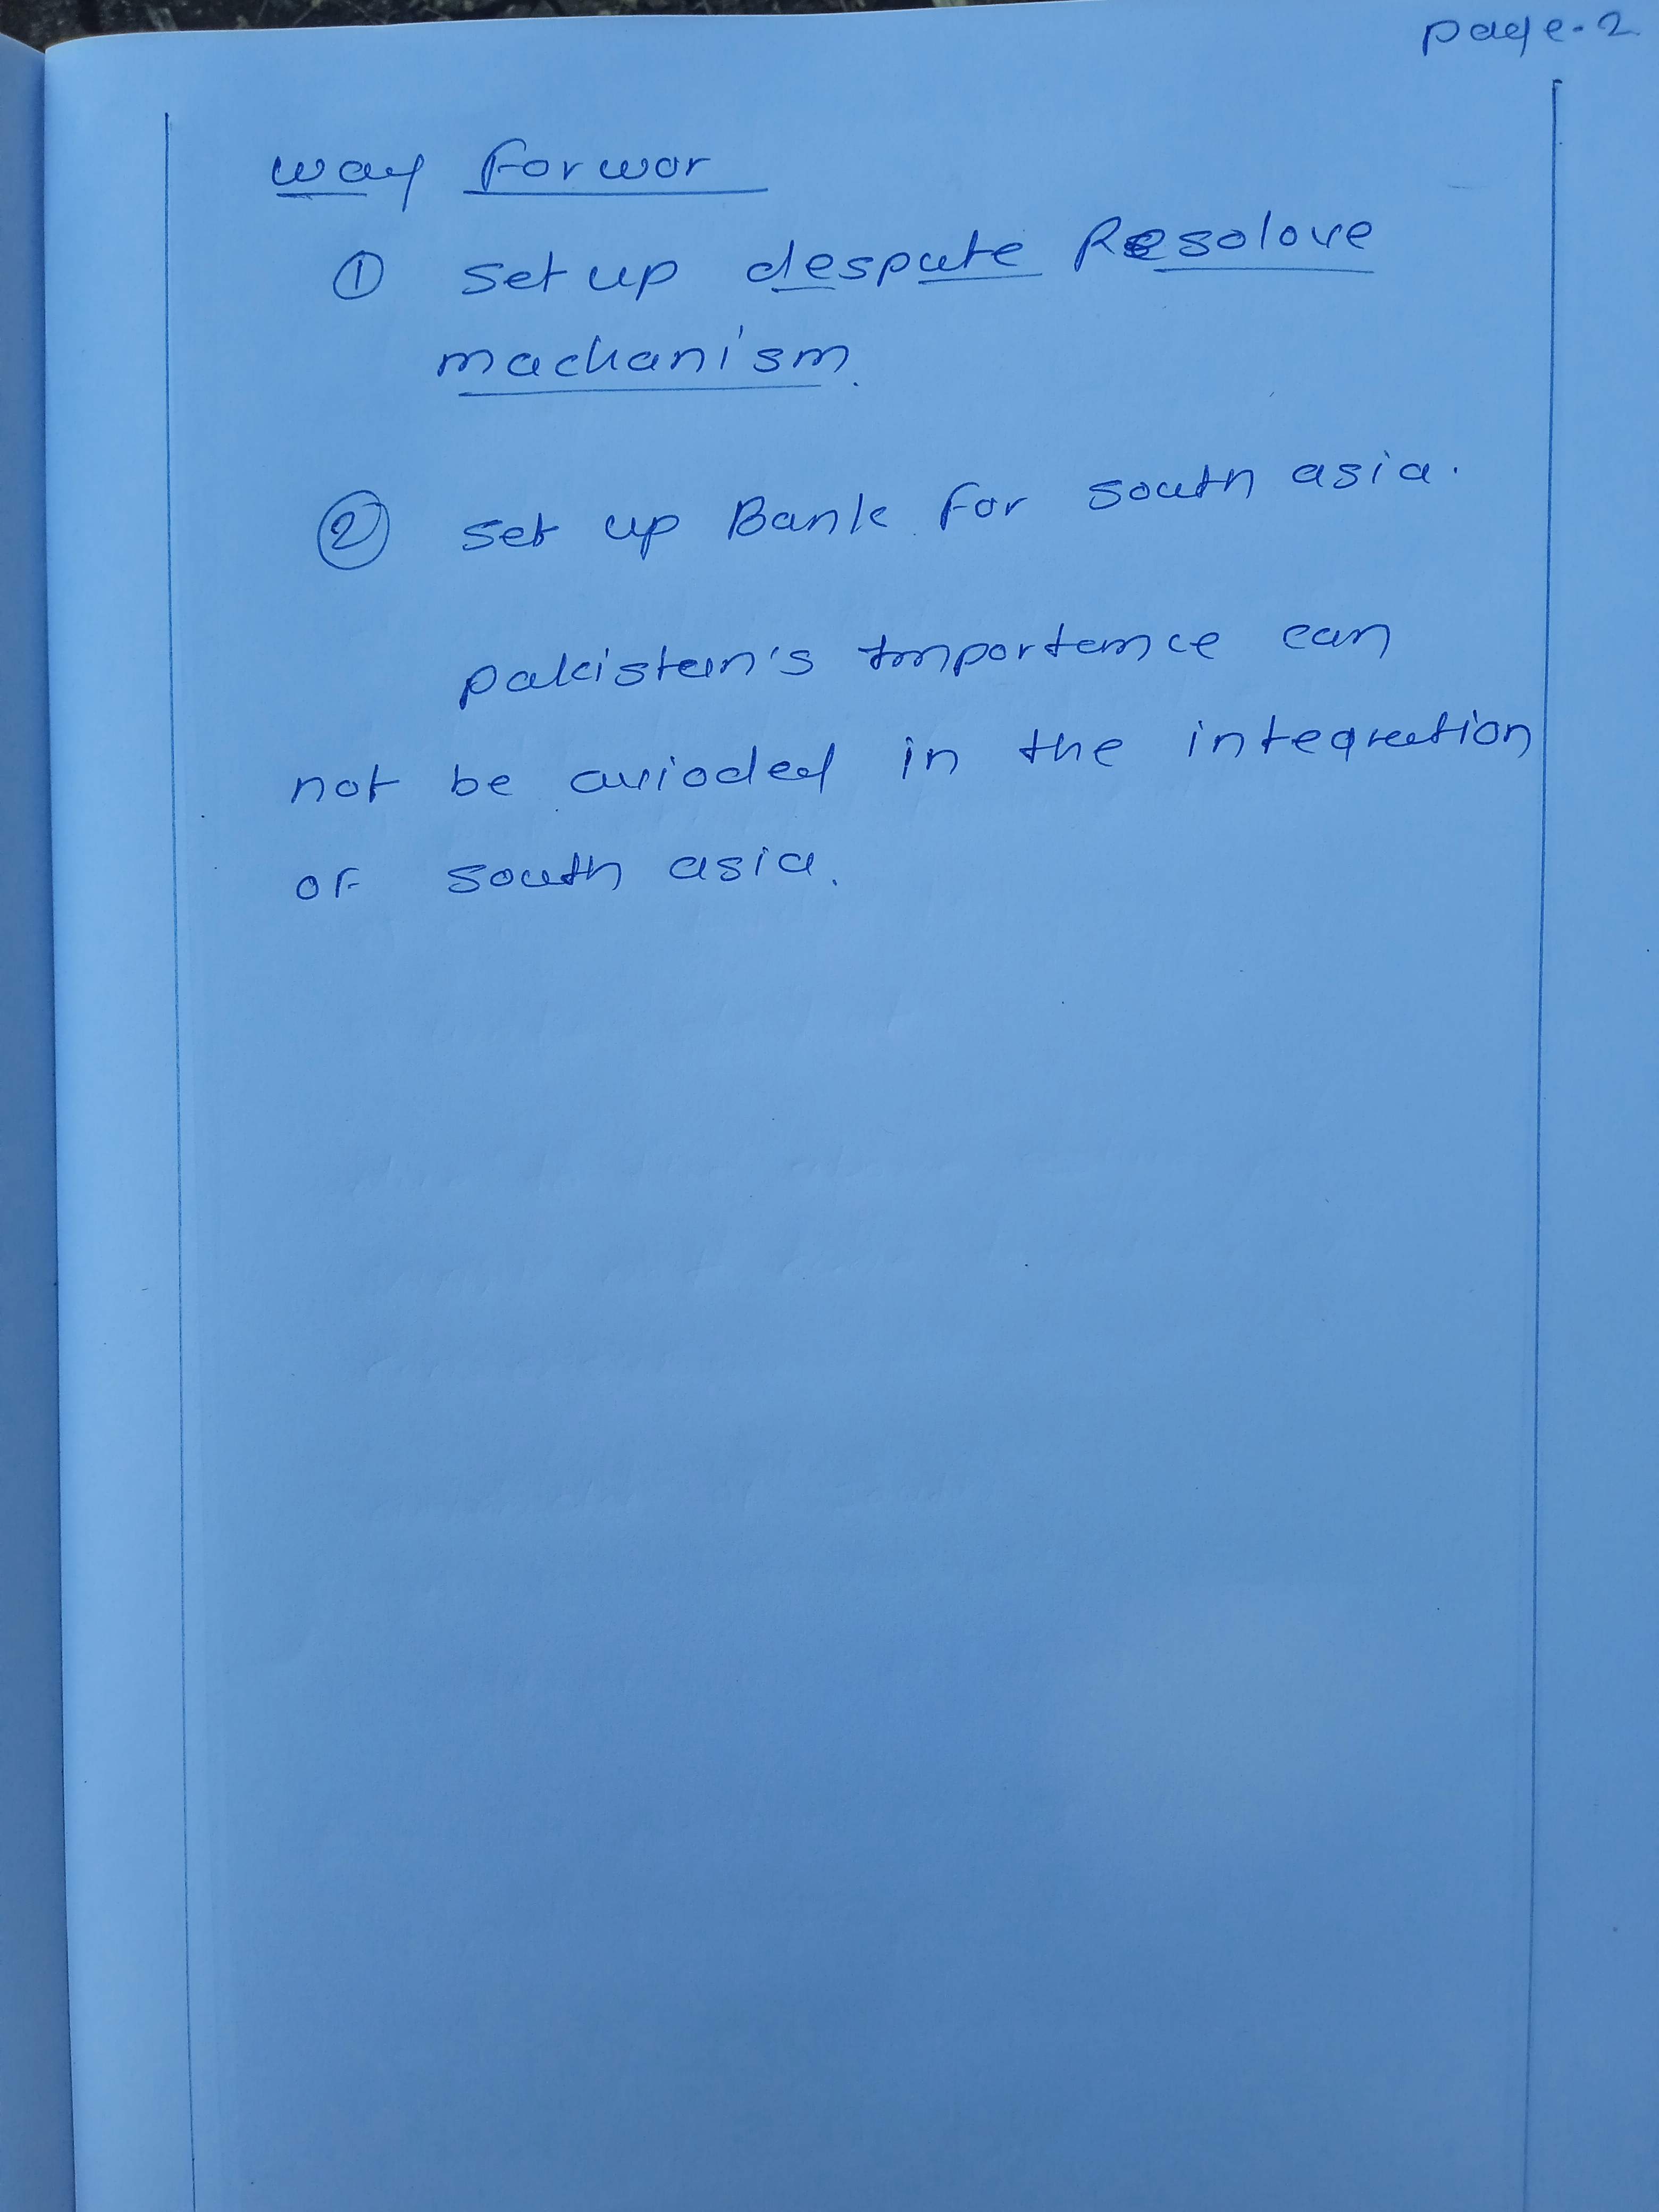 page-2
way Forwor
① set up despute Resolove
machanism.
② set up Bank for south asia.
pakistan's Importance can
not be avioded in the integration
of south asia.